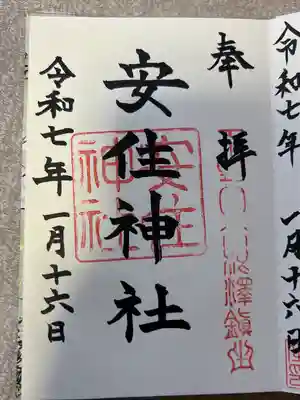 令和七年 一月十六日
奉拝
安住神社
安住神社
令和七年 一月十六日